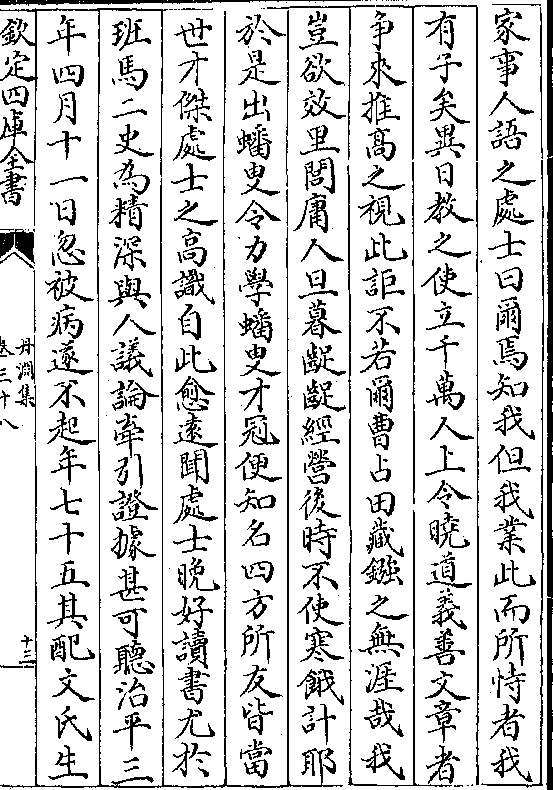 家事人語之處士曰爾焉知我但我業此而所恃者我
有子矣異日教之使立千萬人上令曉道義善文章者
争來推髙之視此詎不若爾曹占田藏鏹之無涯哉我
豈欲效里閭庸人旦暮齪齪經營後時不使寒餓計耶
於是出蟠叟令力學蟠叟才冠便知名四方所友皆當
世才傑處士之高識自此愈遠聞處士晚好讀書尤於
班馬二史為精深與人議論牽引證據甚可聽治平三
年四月十一日忽被病遂不起年七十五其配文氏生
欽定四庫全書
丹淵集
卷三十八
十三